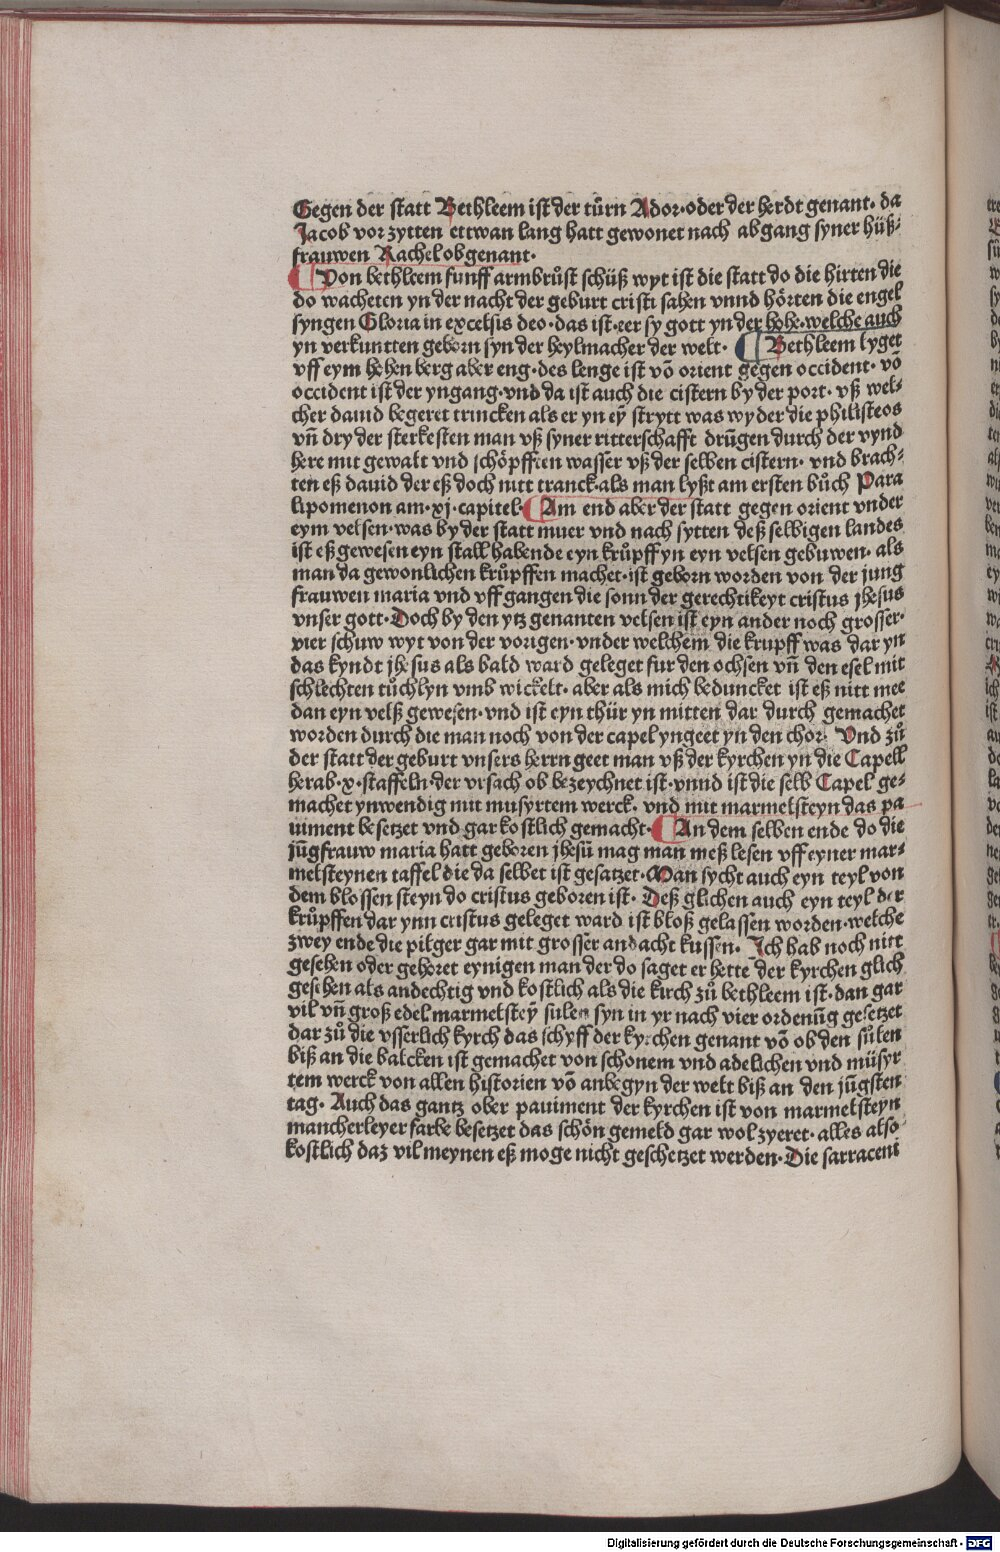 Gegen der statt Bethleem ist der tůrn Ador·oder der herdt genant· da
Jacob vor zytten ettwan lang hatt gewonet nach abgang syner hüß⸗
frauwen Rachel obgenant·
¶ Von bethleem funff armbrůst schüß wyt ist die statt do die hirten die
do wacheten yn der nacht der geburt cristi sahen vnnd hörten die engel
syngen Gloria in excelsis deo·das ist·eer sy gott yn der hohe·welche auch
yn verkuntten geborn syn der heylmacher der welt· ¶ Bethleem lyget
vff eym hohen berg aber eng·des lenge ist võ orient gegen occident· võ
occident ist der yngang·vnd da ist auch die cistern by der port· vß wel⸗
cher dauid begeret trincken als er yn eỹ strytt was wyder die philisteos
vñ dry der sterkesten man vß syner ritterschafft drũgen durch der vynd
here mit gewalt vnd schöpfften wasser vß der selben cistern· vnd brach⸗
ten eß dauid der eß doch nitt tranck·als man lyßt am ersten bůch Para
lipomenon am·xj·capitel·¶ Am end aber der statt gegen orient vnder
eym velsen·was by der statt muer vnd nach sytten deß selbigen landes
ist eß gewesen eyn stall habende eyn krůpff yn eyn velsen gebuwen· als
man da gewonlichen krůpffen machet·ist geborn worden von der jung
frauwen maria vnd vff gangen die sonn der gerechtikeyt cristus jhesus
vnser gott·Doch by den ytz genanten velsen ist eyn ander noch grosser·
vier schuw wyt von der vorigen·vnder welchem die krupff was dar yn
das kyndt jhesus als bald ward geleget fur den ochsen vñ den esel mit
schlechten tůchlyn vmb wickelt· aber als mich beduncket ist eß nitt mee
dan eyn velß gewesen·vnd ist eyn thür yn mitten dar durch gemachet
worden durch die man noch von der capel yngeet yn den chor· Vnd zů
der statt der geburt vnsers herrn geet man vß der kyrchen yn die Capell
herab·x·staffeln·der vrsach ob bezeychnet ist·vnnd ist die selb Capel ge⸗
machet ynwendig mit musyrtem werck· vnd mit marmelsteyn das pa
uiment besetzet vnd gar kostlich gemacht·¶ An dem selben ende do die
jũgfrauw maria hatt geboren jhesũ mag man meß lesen vff eyner mar⸗
melsteynen taffel die da selbet ist gesatzet·Man sycht auch eyn teyl von
dem blossen steyn do cristus geboren ist· Deß glichen auch eyn teyl der
krůpffen dar ynn cristus geleget ward ist bloß gelassen worden·welche
zwey ende die pilger gar mit grosser andacht kussen· Ich hab noch nitt
gesehen oder gehoret eynigen man der do saget er hette der kyrchen glich
gesehen als andechtig vnd kostlich als die kirch zů bethleem ist·dan gar
vil vñ groß edel marmelsteỹ sulen syn in yr nach vier ordenũg gesetzet
dar zů die vsserlich kyrch das schyff der kyrchen genant võ ob den sülen
biß an die balcken ist gemachet von schonem vnd adelichen vnd müsyr
tem werck von allen historien võ anbegyn der welt biß an den jũgsten
tag· Auch das gantz ober pauiment der kyrchen ist von marmelsteyn
mancherleyer farbe besetzet das schön gemeld gar wol zyeret·alles also
kostlich daz vil meynen eß moge nicht geschetzet werden·Die sarraceni
Digitalisierung gefördert durch die Deutsche Forschungsgemeinschaft - DFG